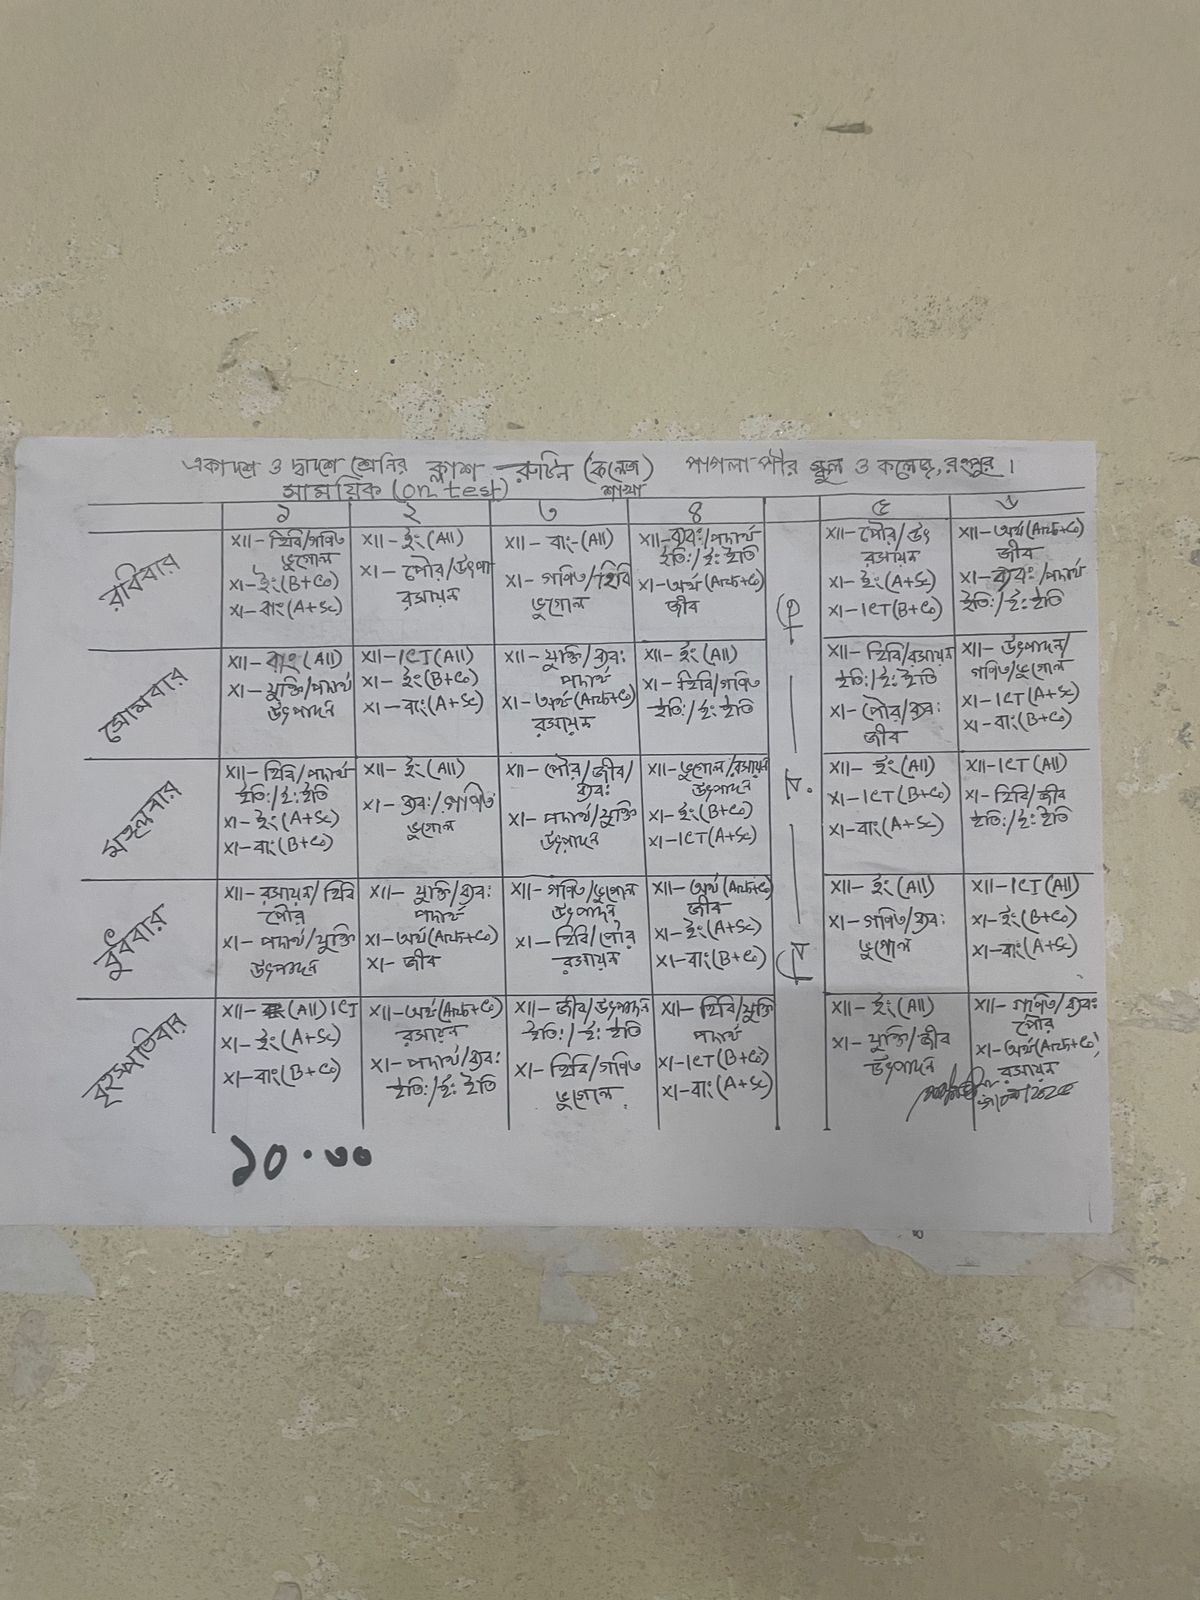 একাদশ ও দ্বাদশ শ্রেনির ক্লাশ রুটিন (কলেজ) পাগলাপীর স্কুল ও কলেজ, রংপুর।
সাময়িক (on test) শাখা
১ ২ ৩ ৪ ৫ ৬
রবিবার
XII- হিবি/গণিত
ভুগোল
XI- ইং (B+Co)
XI- বাং (A+Sc)
XII- ইং (All)
XI- পৌর/উৎপা
রসায়ন
XII- বাং-(All)
XI- গণিত/হিবি
ভুগোল
XII- ব্যব:/পদার্থ
ইতি:/ই: ইতি
XI- অর্থ (Arch+Co)
জীব
XII- পৌর/উৎ
রসায়ন
XI- ইং (A+Sc)
XI- ICT (B+Co)
XII- অর্থ (Arch+Co)
জীব
XI- ব্যব:/পদার্থ
ইতি:/ই: ইতি
সোমবার
XII- বাং (All)
XI- যুক্তি/পদার্থ
উৎপাদন
XII- ICT (All)
XI- ইং (B+Co)
XI- বাং (A+Sc)
XII- যুক্তি/ব্যব:
পদার্থ
XI- অর্থ (Arch+Co)
রসায়ন
XII- ইং (All)
XI- হিবি/গণিত
ইতি:/ই: ইতি
XII- হিবি/রসায়ন
ইতি:/ই: ইতি
XI- পৌর/ব্যব:
জীব
XII- উৎপাদন/
গণিত/ভুগোল
XI- ICT (A+Sc)
XI- বাং (B+Co)
মঙ্গলবার
XII- হিবি/পদার্থ
ইতি:/ই: ইতি
XI- ইং (A+Sc)
XI- বাং (B+Co)
XII- ইং (All)
XI- ব্যব:/গণিত
ভুগোল
XII- পৌর/জীব/
ব্যব:
XI- পদার্থ/যুক্তি
উৎপাদন
XII- ভুগোল/রসায়ন
উৎপাদন
XI- ইং (B+Co)
XI- ICT (A+Sc)
XII- ইং (All)
XI- ICT (B+Co)
XI- বাং (A+Sc)
XII- ICT (All)
XI- হিবি/জীব
ইতি:/ই: ইতি
বুধবার
XII- রসায়ন/হিবি
পৌর
XI- পদার্থ/যুক্তি
উৎপাদন
XII- যুক্তি/ব্যব:
পদার্থ
XI- অর্থ (Arch+Co)
XI- জীব
XII- গণিত/ভুগোল
উৎপাদন
XI- হিবি/পৌর
রসায়ন
XII- অর্থ (Arch+Co)
জীব
XI- ইং (A+Sc)
XI- বাং (B+Co)
XII- ইং (All)
XI- গণিত/ব্যব:
ভুগোল
XII- ICT (All)
XI- ইং (B+Co)
XI- বাং (A+Sc)
বৃহস্পতিবার
XII- (All) ICT
XI- ইং (A+Sc)
XI- বাং (B+Co)
XII- অর্থ (Arch+Co)
রসায়ন
XI- পদার্থ/ব্যব:
ইতি:/ই: ইতি
XII- জীব/উৎপাদন
ইতি:/ই: ইতি
XI- হিবি/গণিত
ভুগোল
XII- হিবি/যুক্তি
পদার্থ
XI- ICT (B+Co)
XI- বাং (A+Sc)
XII- ইং (All)
XI- যুক্তি/জীব
উৎপাদন
XII- গণিত/ব্যব:
পৌর
XI- অর্থ (Arch+Co)
রসায়ন
১০.৩০